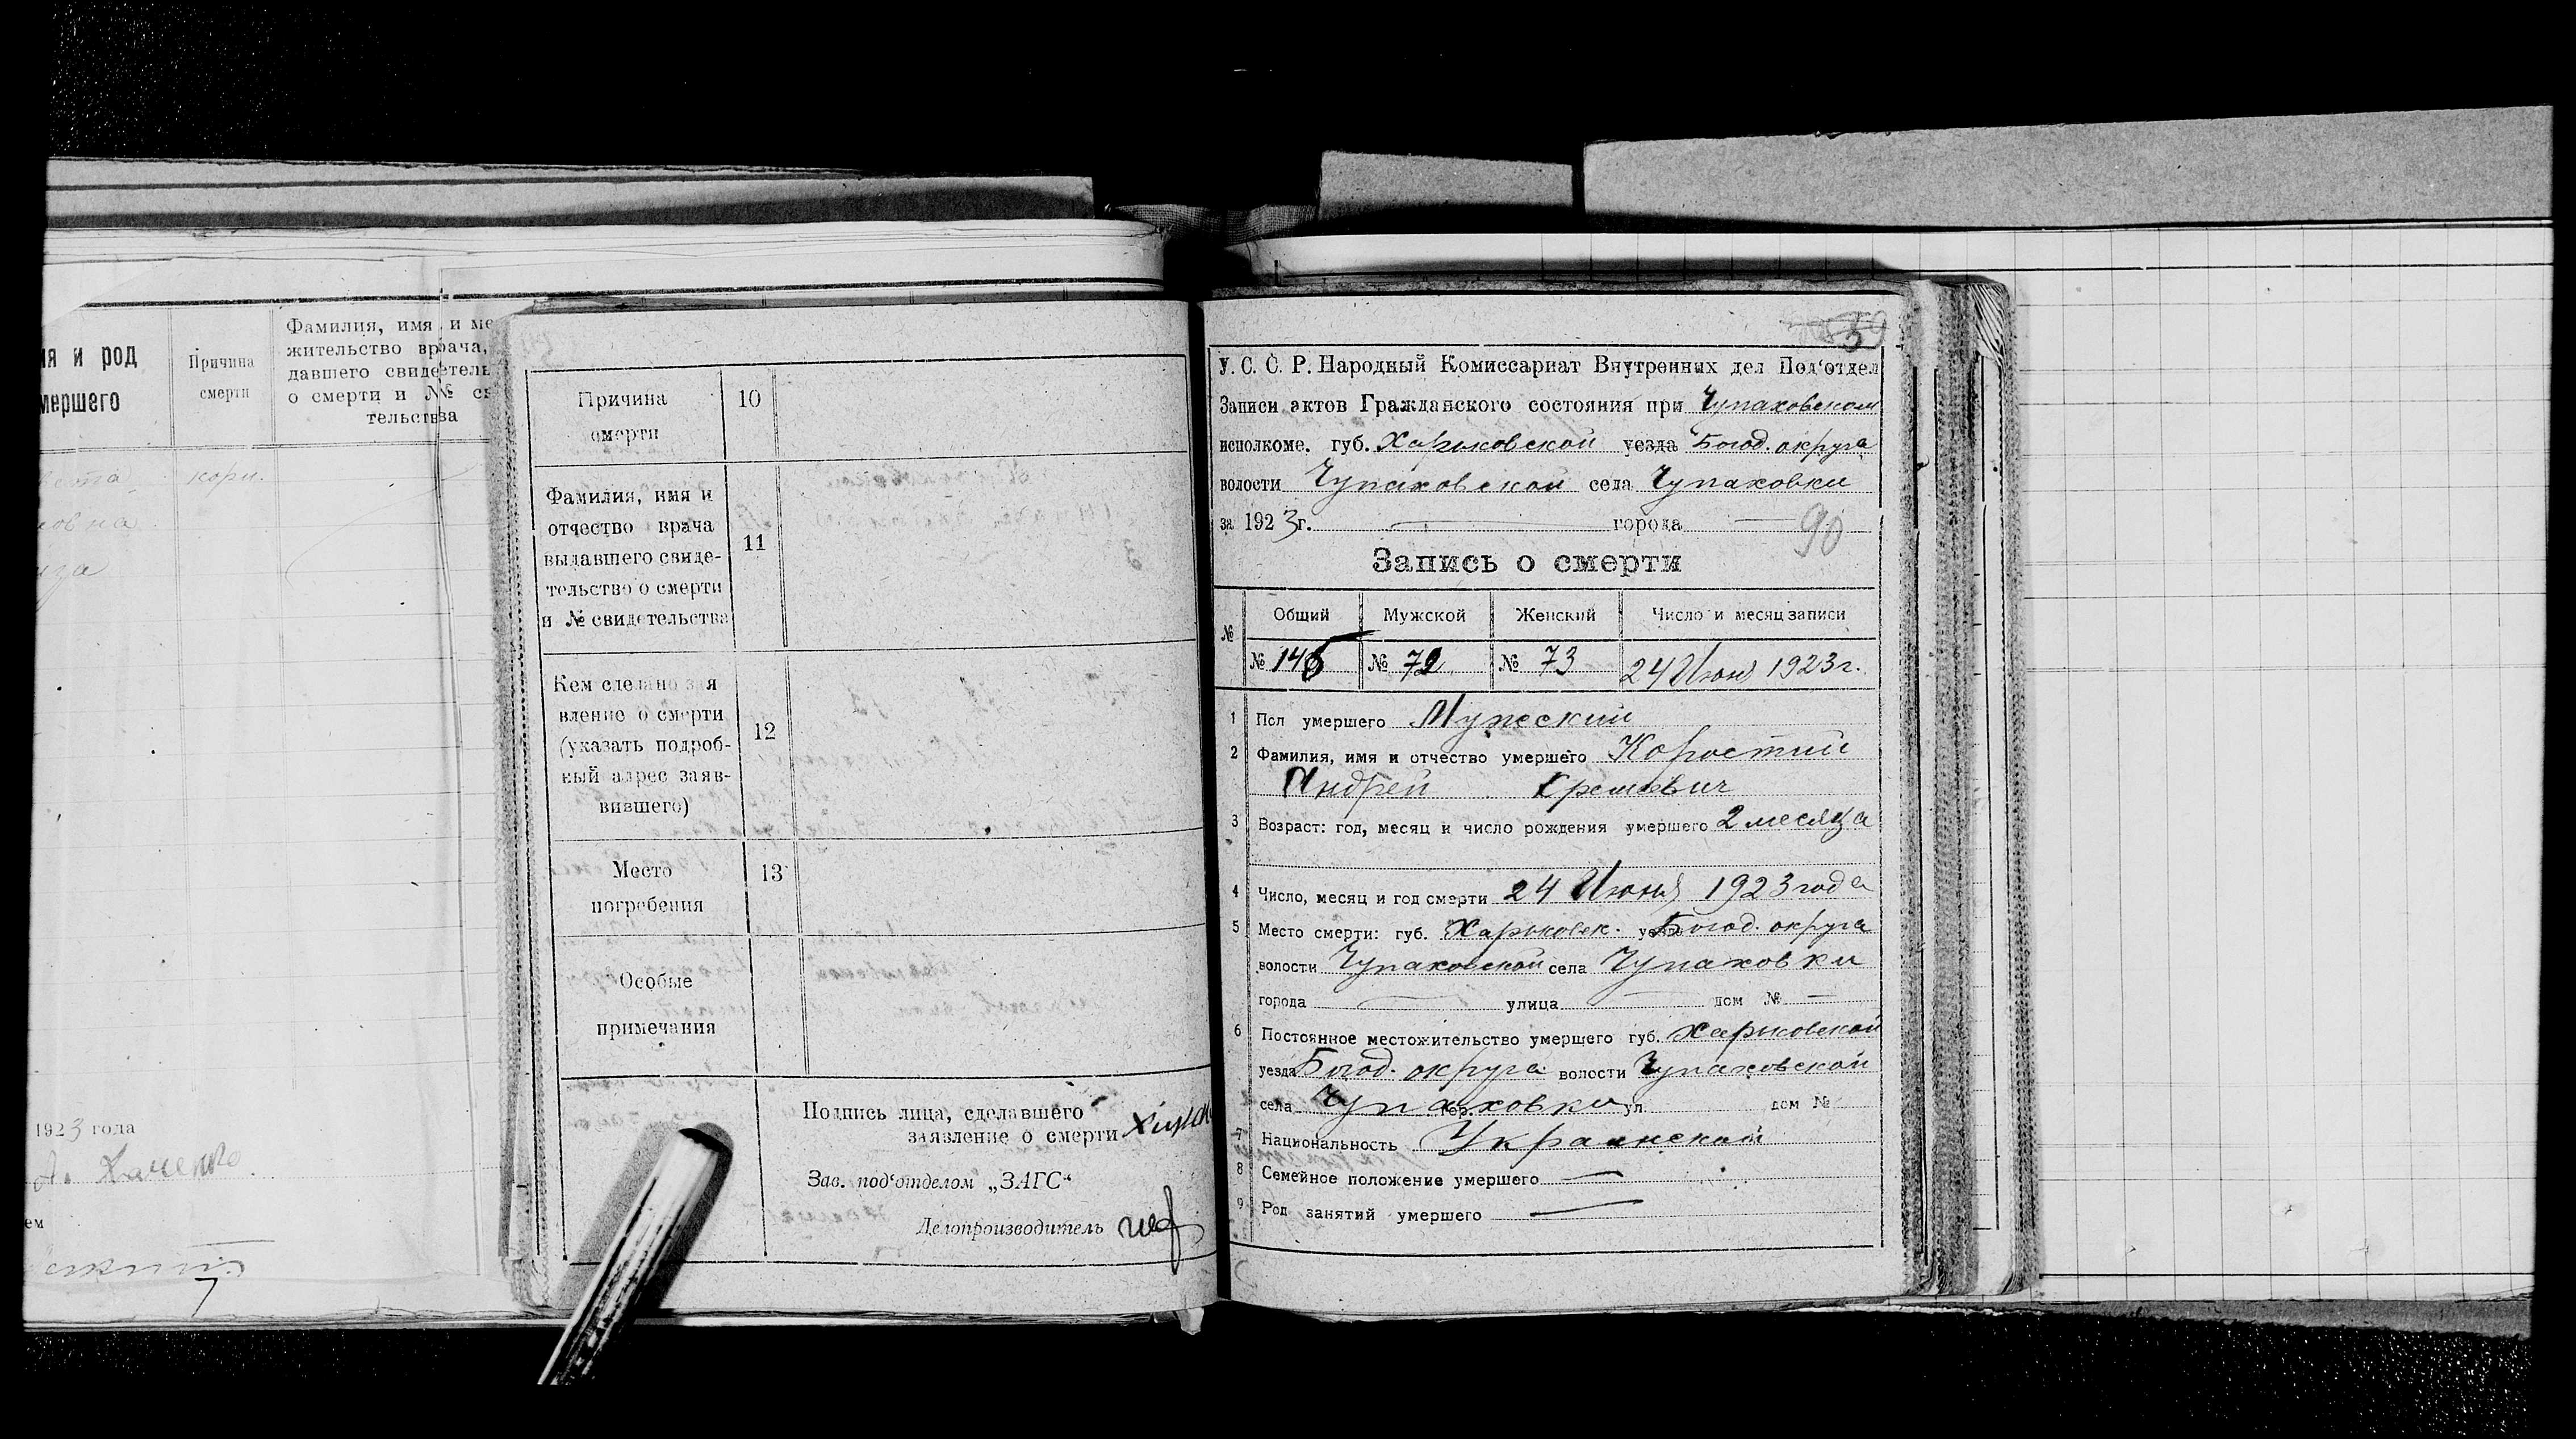 ия и род
мершего
Причина
смерти
Фамилия, имя и ме
жительство врача,
давшего свидетель
о смерти и № св
тельства
кори.
1923 года
ем
7
Причина
смерти
10
Фамилия, имя и
отчество врача
выдавшего свиде-
тельство о смерти
и № свидетельства
11
Кем сделано зая
вление о смерти
(указать подроб-
ный адрес заяв-
вившего)
12
Место
погребения
13
Особые
примечания
Подпись лица, сделавшего
заявление о смерти
Зав. под'отделом „ЗАГС“
Делопроизводитель
У. С. С. Р. Народный Комиссариат Внутренних дел Под'отдел
Записи актов Гражданского состояния при Чупаховском
исполкоме. губ. Харьковской уезда Богод. округа
волости Чупаховской села Чупаховки
за 1923г. города
90
Запись о смерти
№ Общий Мужской Женский Число и месяц записи
№ 145 № 72 № 73 24 Июня 1923 г.
1 Пол умершего Мужеский
2 Фамилия, имя и отчество умершего Коростий
Андрей
3 Возраст: год, месяц и число рождения умершего 2 месяца
4 Число, месяц и год смерти 24 Июня 1923 года
5 Место смерти: губ. Харьковск. уезда Богод. округа
волости Чупаховской села Чупаховки
города улица дом №
6 Постоянное местожительство умершего губ. Харьковской
уезда Богод. округа волости Чупаховской
села Чупаховки гор. ул. дом №
7 Национальность Украинский
8 Семейное положение умершего —
9 Род занятий умершего —